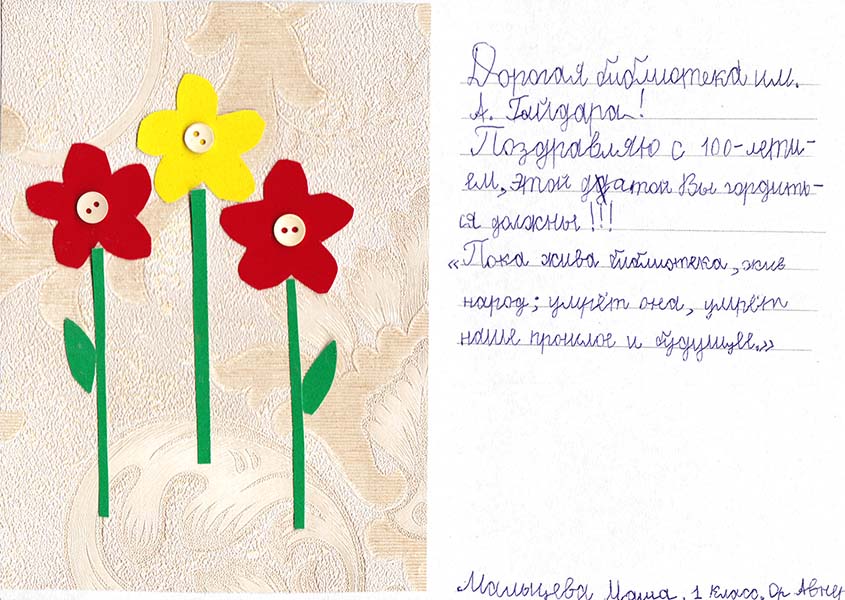 Дорогая библиотека им.
А. Гайдара!
Поздравляю с 100-лети-
ем, этой датой Вы гордить-
ся должны!!!
«Пока жива библиотека, жив
народ; умрёт она, умрёт
наше прошлое и будущее.»
Мальцева Маша, 1 класс,